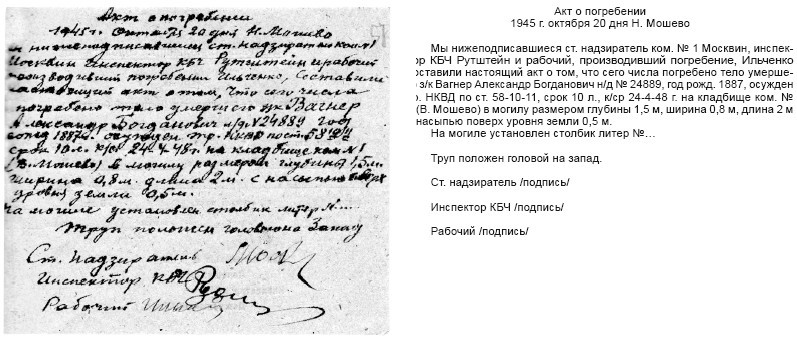 Акт о погребении
1945 г. Октября 20 дня Н. Мошево
нижеподписавшиеся ст. надзиратель ком №1
Москвин Инспектор КБЧ Рутштейн и рабочий
производивший погребение Ильченко, Составили
настоящий акт о том, что сего числа
погребено тело умершего з/к Вагнер
Александр Богданович н/д №24889 год
рожд 1887 осужден НКВД по ст 58-10-11
срок 10 л. к/ср 24-4-48 г. на кладбище ком №1
(В. Мошево) в могилу размером глубины 1,5 м.
ширина 0,8 м. длина 2 м. с насыпью поверх
уровня земли 0,5 м.
На могиле установлен столбик литер №...
Труп положен головой на Запад
Ст. надзиратель
Инспектор КБЧ
Рабочий
Акт о погребении
1945 г. октября 20 дня Н. Мошево
Мы нижеподписавшиеся ст. надзиратель ком. № 1 Москвин, инспек-
ор КБЧ Рутштейн и рабочий, производивший погребение, Ильченко
оставили настоящий акт о том, что сего числа погребено тело умерше-
о з/к Вагнер Александр Богданович н/д № 24889, год рожд. 1887, осужден
. НКВД по ст. 58-10-11, срок 10 л., к/ср 24-4-48 г. на кладбище ком. №
(В. Мошево) в могилу размером глубины 1,5 м, ширина 0,8 м, длина 2 м
насыпью поверх уровня земли 0,5 м.
На могиле установлен столбик литер №…
Труп положен головой на запад.
Ст. надзиратель /подпись/
Инспектор КБЧ /подпись/
Рабочий /подпись/